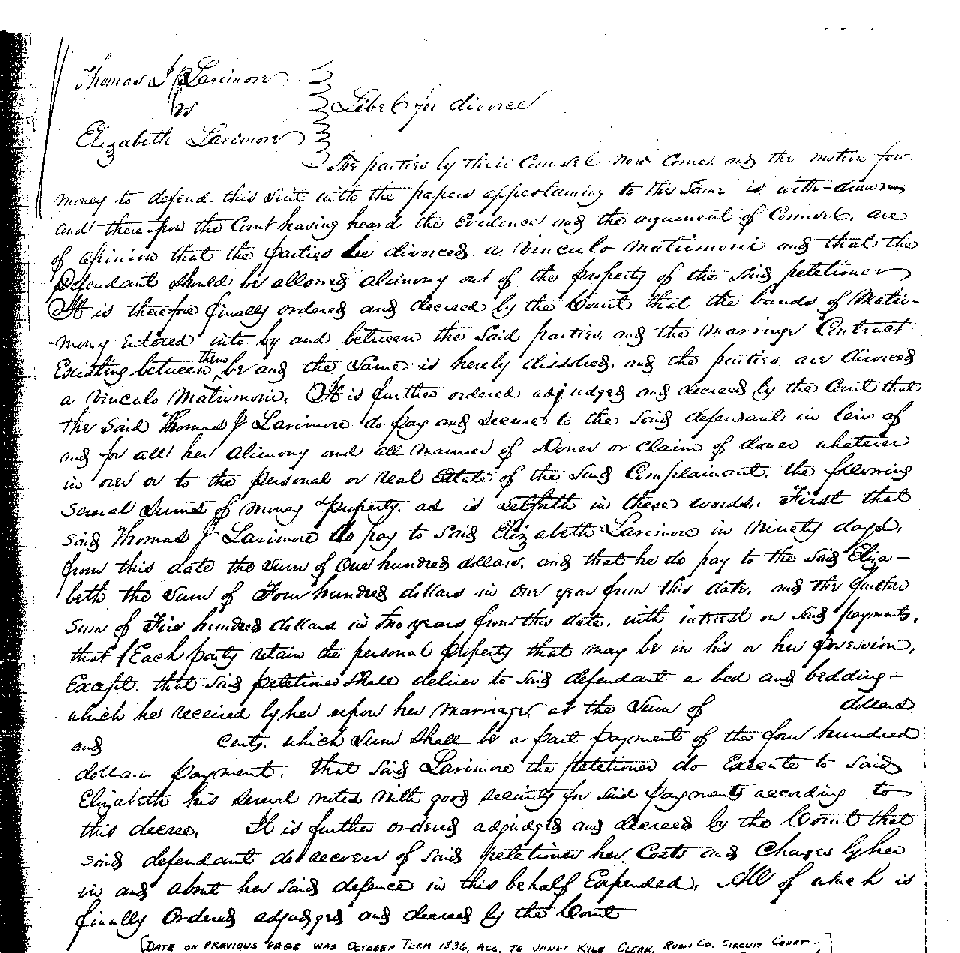 Thomas J Larimore
vs
Libel for divorce
Elizabeth Larimore
The parties by their Counsel now comes and the motion for
money to defend this suit with the papers appertaining to the same is with-drawn
and therefore the Court having heard the Evidence and the arguement of Counsel, are
of opinion that the parties be divorced a vinculo Matrimonii and that the
Defendant should be allowed alimony out of the property of the said petetioner
It is therefore finally ordered and decreed by the Court that the bands of Matri-
mony entered into by and between the Said parties and the marriage Contract
Existing between them be and the same is hereby dissolved, and the parties are divorced
a vinculo Matrimonii. It is further ordered adjudged and decreed by the Court that
the said Thomas J Larimore do pay and secure to the said defendant in lieu of
and for all her alimony and all manner of Dower or claim of dower whatever
in over or to the personal or real Estate of the said Complainant, the following
several sums of money & property as is setforth in these words. First that
said Thomas J Larimore do pay to said Elizabeth Larimore in Ninety days,
from this date the sum of One hundred dollars, and that he do pay to the said Eliza-
beth the sum of Four hundred dollars in one year from this date, and the further
sum of Five hundred dollars in two years from this date, with interest on said payments,
that Each party retain the personal property that may be in his or her possession,
Except that said petetioner shall deliver to said defendant a bed and bedding-
which he received by her upon her marriage at the sum of dollars
and cents, which sum shall be a part payment of the four hundred
dollar payment, that said Larimore the petetioner do Execute to said
Elizabeth his several notes with good security for said payments according to
this decree. It is further ordered adjudged and decreed by the Court that
said defendant do recover of said petetioner her Costs and Charges by her
in and about her said defence in this behalf Expended, All of which is
finally Ordered adjudged and decreed by the Court
[DATE ON PREVIOUS PAGE WAS OCTOBER TERM 1836, ACC. TO JANET KING CLERK, RUSH CO. CIRCUIT COURT.]